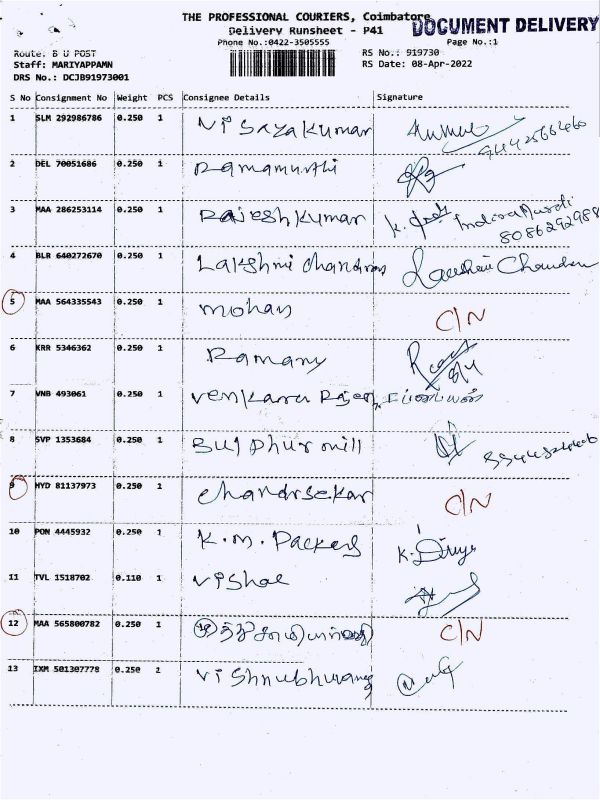 THE PROFESSIONAL COURIERS, Coimbatore
DOCUMENT DELIVERY
Delivery Runsheet - P41
Phone No.:0422-3505555
Page No.:1
Route: B U POST
RS No.: 919730
Staff: MARIYAPPAMN
RS Date: 08-Apr-2022
DRS No.: DCJB91973001
S No Consignment No Weight PCS Consignee Details Signature
1 SLM 292986786 0.250 1 Visayakumar
2 DEL 70051686 0.250 1 Ramamurthi
3 MAA 286253114 0.250 1 Rajesh Kumar
8086292988
4 BLR 640272670 0.250 1 Lakshmi Chandran
5 MAA 564335543 0.250 1 mohan C/N
6 KRR 5346362 0.250 1 Ramany
7 VNB 493061 0.250 1
8 SVP 1353684 0.250 1 Sulphur mill
9 HYD 81137973 0.250 1 Chandrsekar C/N
10 PON 4445932 0.250 1 K.M. Packers K. Divya
11 TVL 1518702 0.110 1 Vishal
12 MAA 565800782 0.250 1 C/N
13 IXM 501307778 0.250 2